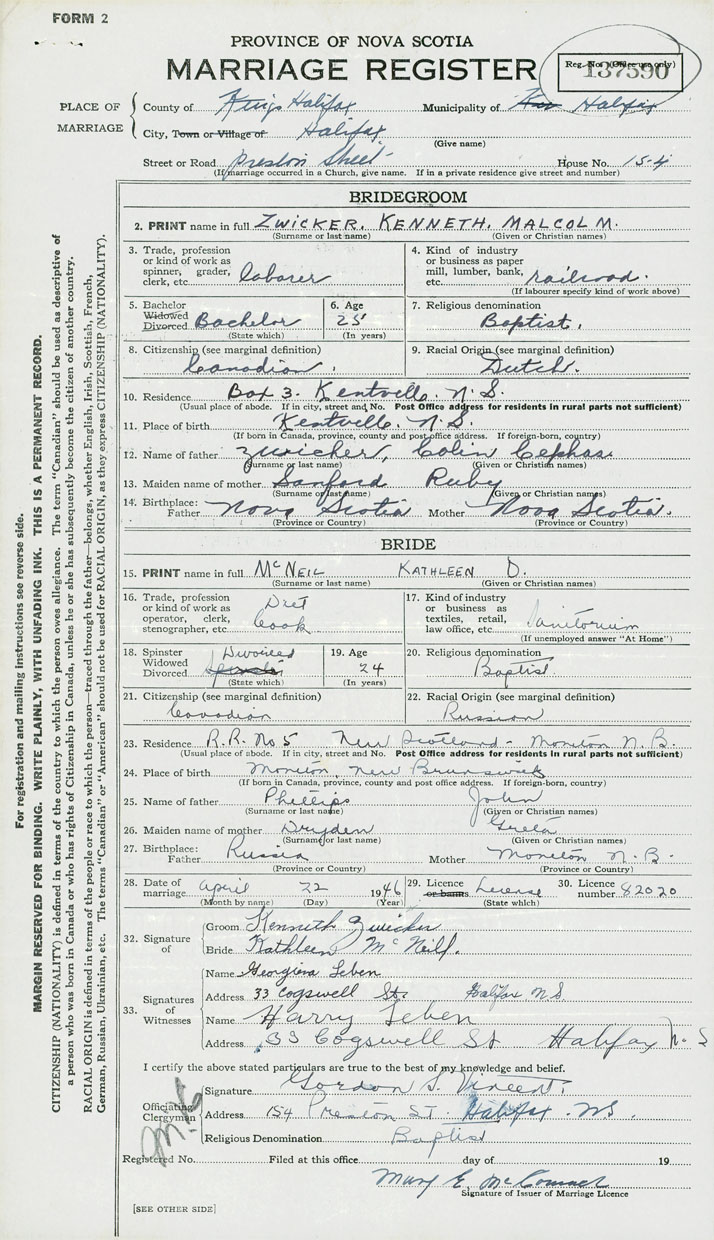 FORM 2
PROVINCE OF NOVA SCOTIA
MARRIAGE REGISTER
Reg. No. (Office use only)
137590
PLACE OF MARRIAGE
County of Kings Halifax Municipality of Halifax
City, Town or Village of Halifax
(Give name)
Street or Road Preston Street House No. 154
(If marriage occurred in a Church, give name. If in a private residence give street and number)
BRIDEGROOM
2. PRINT name in full ZWICKER, KENNETH, MALCOLM.
(Surname or last name) (Given or Christian names)
3. Trade, profession or kind of work as spinner, grader, clerk, etc. laborer
4. Kind of industry or business as paper mill, lumber, bank, etc. railroad.
(If labourer specify kind of work above)
5. Bachelor Widowed Divorced Bachelor
(State which)
6. Age 25
(In years)
7. Religious denomination
Baptist.
8. Citizenship (see marginal definition)
Canadian.
9. Racial Origin (see marginal definition)
Dutch.
10. Residence Box 3. Kentville. N.S.
(Usual place of abode. If in city, street and No. Post Office address for residents in rural parts not sufficient)
11. Place of birth Kentville. N.S.
(If born in Canada, province, county and post office address. If foreign-born, country)
12. Name of father Zwicker, Colin Cephas
(Surname or last name) (Given or Christian names)
13. Maiden name of mother Sanford Ruby
(Surname or last name) (Given or Christian names)
14. Birthplace: Father Nova Scotia Mother Nova Scotia.
(Province or Country) (Province or Country)
BRIDE
15. PRINT name in full McNEIL KATHLEEN D.
(Surname or last name) (Given or Christian names)
16. Trade, profession or kind of work as operator, clerk, stenographer, etc. Diet Cook
17. Kind of industry or business as textiles, retail, law office, etc. Sanitorium
(If unemployed answer "At Home")
18. Spinster Widowed Divorced Divorced
(State which)
19. Age 24
(In years)
20. Religious denomination
Baptist
21. Citizenship (see marginal definition)
Canadian
22. Racial Origin (see marginal definition)
Russian
23. Residence R.R. No 5 New Scotland - Moncton N.B.
(Usual place of abode. If in city, street and No. Post Office address for residents in rural parts not sufficient)
24. Place of birth Moncton, New Brunswick
(If born in Canada, province, county and post office address. If foreign-born, country)
25. Name of father Phillips John
(Surname or last name) (Given or Christian names)
26. Maiden name of mother Dryden Greta
(Surname or last name) (Given or Christian names)
27. Birthplace: Father Russia Mother Moncton N.B.
(Province or Country) (Province or Country)
28. Date of marriage April 22 1946
(Month by name) (Day) (Year)
29. Licence or banns License
(State which)
30. Licence number 82020
32. Signature of
Groom Kenneth Zwicker
Bride Kathleen McNeill.
33. Signatures of Witnesses
Name Georgiena Leben
Address 33 Cogswell St. Halifax NS
Name Harry Leben
Address 33 Cogswell St Halifax N.S
I certify the above stated particulars are true to the best of my knowledge and belief.
Officiating Clergyman
Signature Gordon S. Vincent.
Address 154 Preston ST. Halifax N.S.
Religious Denomination Baptist
Registered No. Filed at this office day of 19
Mary E. McCormack
Signature of Issuer of Marriage Licence
[SEE OTHER SIDE]
For registration and mailing instructions see reverse side.
MARGIN RESERVED FOR BINDING. WRITE PLAINLY, WITH UNFADING INK. THIS IS A PERMANENT RECORD.
CITIZENSHIP (NATIONALITY) is defined in terms of the country to which the person owes allegiance. The term "Canadian" should be used as descriptive of
a person who was born in Canada or who has rights of Citizenship in Canada, unless he or she has subsequently become the citizen of another country.
RACIAL ORIGIN is defined in terms of the people or race to which the person—traced through the father—belongs, whether English, Irish, Scottish, French,
German, Russian, Ukrainian, etc. The terms "Canadian" or "American" should not be used for RACIAL ORIGIN, as they express CITIZENSHIP (NATIONALITY).